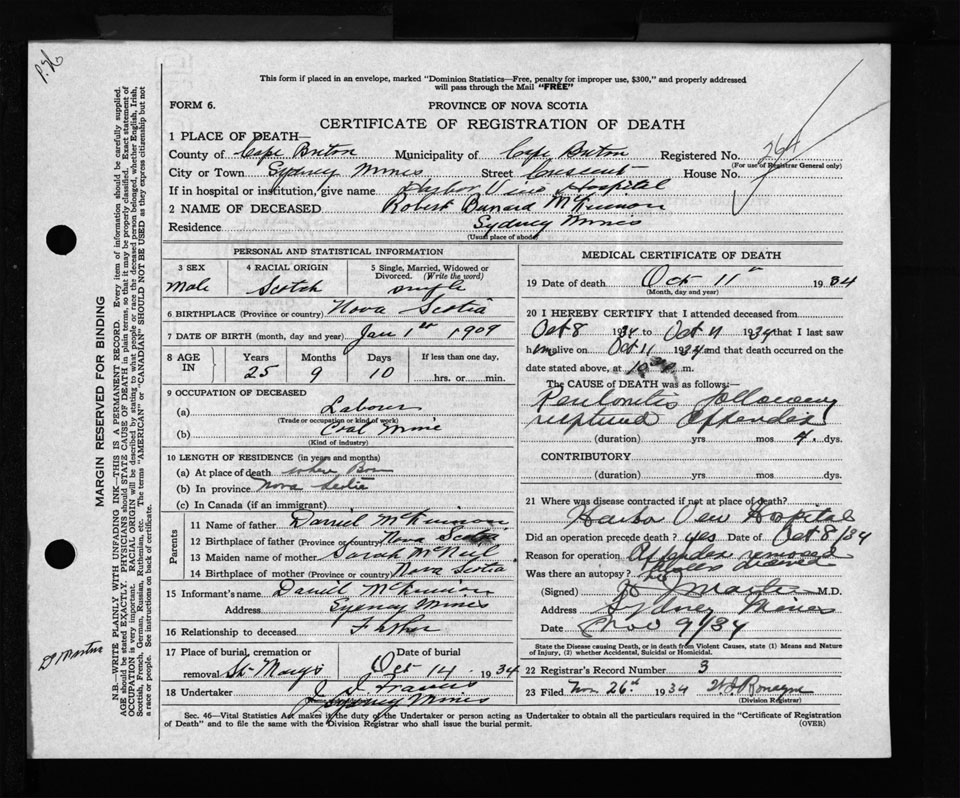 This form if placed in an envelope, marked "Dominion Statistics—Free, penalty for improper use, $300," and properly addressed
will pass through the Mail "FREE"
FORM 6.
PROVINCE OF NOVA SCOTIA
CERTIFICATE OF REGISTRATION OF DEATH
1 PLACE OF DEATH—
County of Cape Breton Municipality of Cape Breton Registered No. 264
(For use of Registrar General only)
City or Town Sydney Mines Street Crescent House No.
If in hospital or institution, give name Harbor View Hospital
2 NAME OF DECEASED Robert Barnard McKinnon
Residence Sydney Mines
(Usual place of abode)
PERSONAL AND STATISTICAL INFORMATION
3 SEX 4 RACIAL ORIGIN 5 Single, Married, Widowed or Divorced. (Write the word)
Male Scotch single
6 BIRTHPLACE (Province or country) Nova Scotia
7 DATE OF BIRTH (month, day and year) Jan 1st 1909
8 AGE IN Years Months Days If less than one day,
25 9 10 ....hrs. or......min.
9 OCCUPATION OF DECEASED
(a) Labourer
(Trade or occupation or kind of work)
(b) Coal Mine
(Kind of industry)
10 LENGTH OF RESIDENCE (in years and months)
(a) At place of death where Born
(b) In province Nova Scotia
(c) In Canada (if an immigrant)
Parents
11 Name of father Daniel McKinnon
12 Birthplace of father (Province or country) Nova Scotia
13 Maiden name of mother Sarah McNeil
14 Birthplace of mother (Province or country) Nova Scotia
15 Informant's name Daniel McKinnon
Address Sydney Mines
16 Relationship to deceased Father
17 Place of burial, cremation or removal Date of burial
St Marys Oct 14 1934
18 Undertaker
Sydney Mines
MEDICAL CERTIFICATE OF DEATH
19 Date of death Oct 11th 1934
(Month, day and year)
20 I HEREBY CERTIFY that I attended deceased from
Oct 8 1934 to Oct 11 1934 that I last saw
him alive on Oct 11 1934 and that death occurred on the
date stated above, at m.
The CAUSE OF DEATH was as follows:—
Peritonitis following
ruptured appendix
(duration) yrs mos 4 dys.
CONTRIBUTORY
(duration) yrs mos dys.
21 Where was disease contracted if not at place of death?
Harbor View Hospital
Did an operation precede death? yes Date of Oct 8/34
Reason for operation Appendix removed
Was there an autopsy?
(Signed) M.D.
Address Sydney Mines
Date Nov 9/34
State the Disease causing Death, or in death from Violent Causes, state (1) Means and Nature
of Injury, (2) whether Accidental, Suicidal or Homicidal.
22 Registrar's Record Number 3
23 Filed Nov 26th 1934
(Division Registrar)
Sec. 46—Vital Statistics Act makes it the duty of the Undertaker or person acting as Undertaker to obtain all the particulars required in the "Certificate of Registration
of Death" and to file the same with the Division Registrar who shall issue the burial permit.
(OVER)
MARGIN RESERVED FOR BINDING
N.B.—WRITE PLAINLY WITH UNFADING INK—THIS IS A PERMANENT RECORD. Every item of information should be carefully supplied.
AGE should be stated EXACTLY. PHYSICIANS should STATE CAUSE OF DEATH in plain terms, so that it may be properly classified. Exact statement of
OCCUPATION is very important. RACIAL ORIGIN will be described by stating to what people or race the deceased person belonged, whether English, Irish,
Scottish, French, German, Russian, Ruthenian, etc. The terms "AMERICAN" or "CANADIAN" SHOULD NOT BE USED as they express citizenship but not
a race or people. See instructions on back of certificate.
Dr Martin